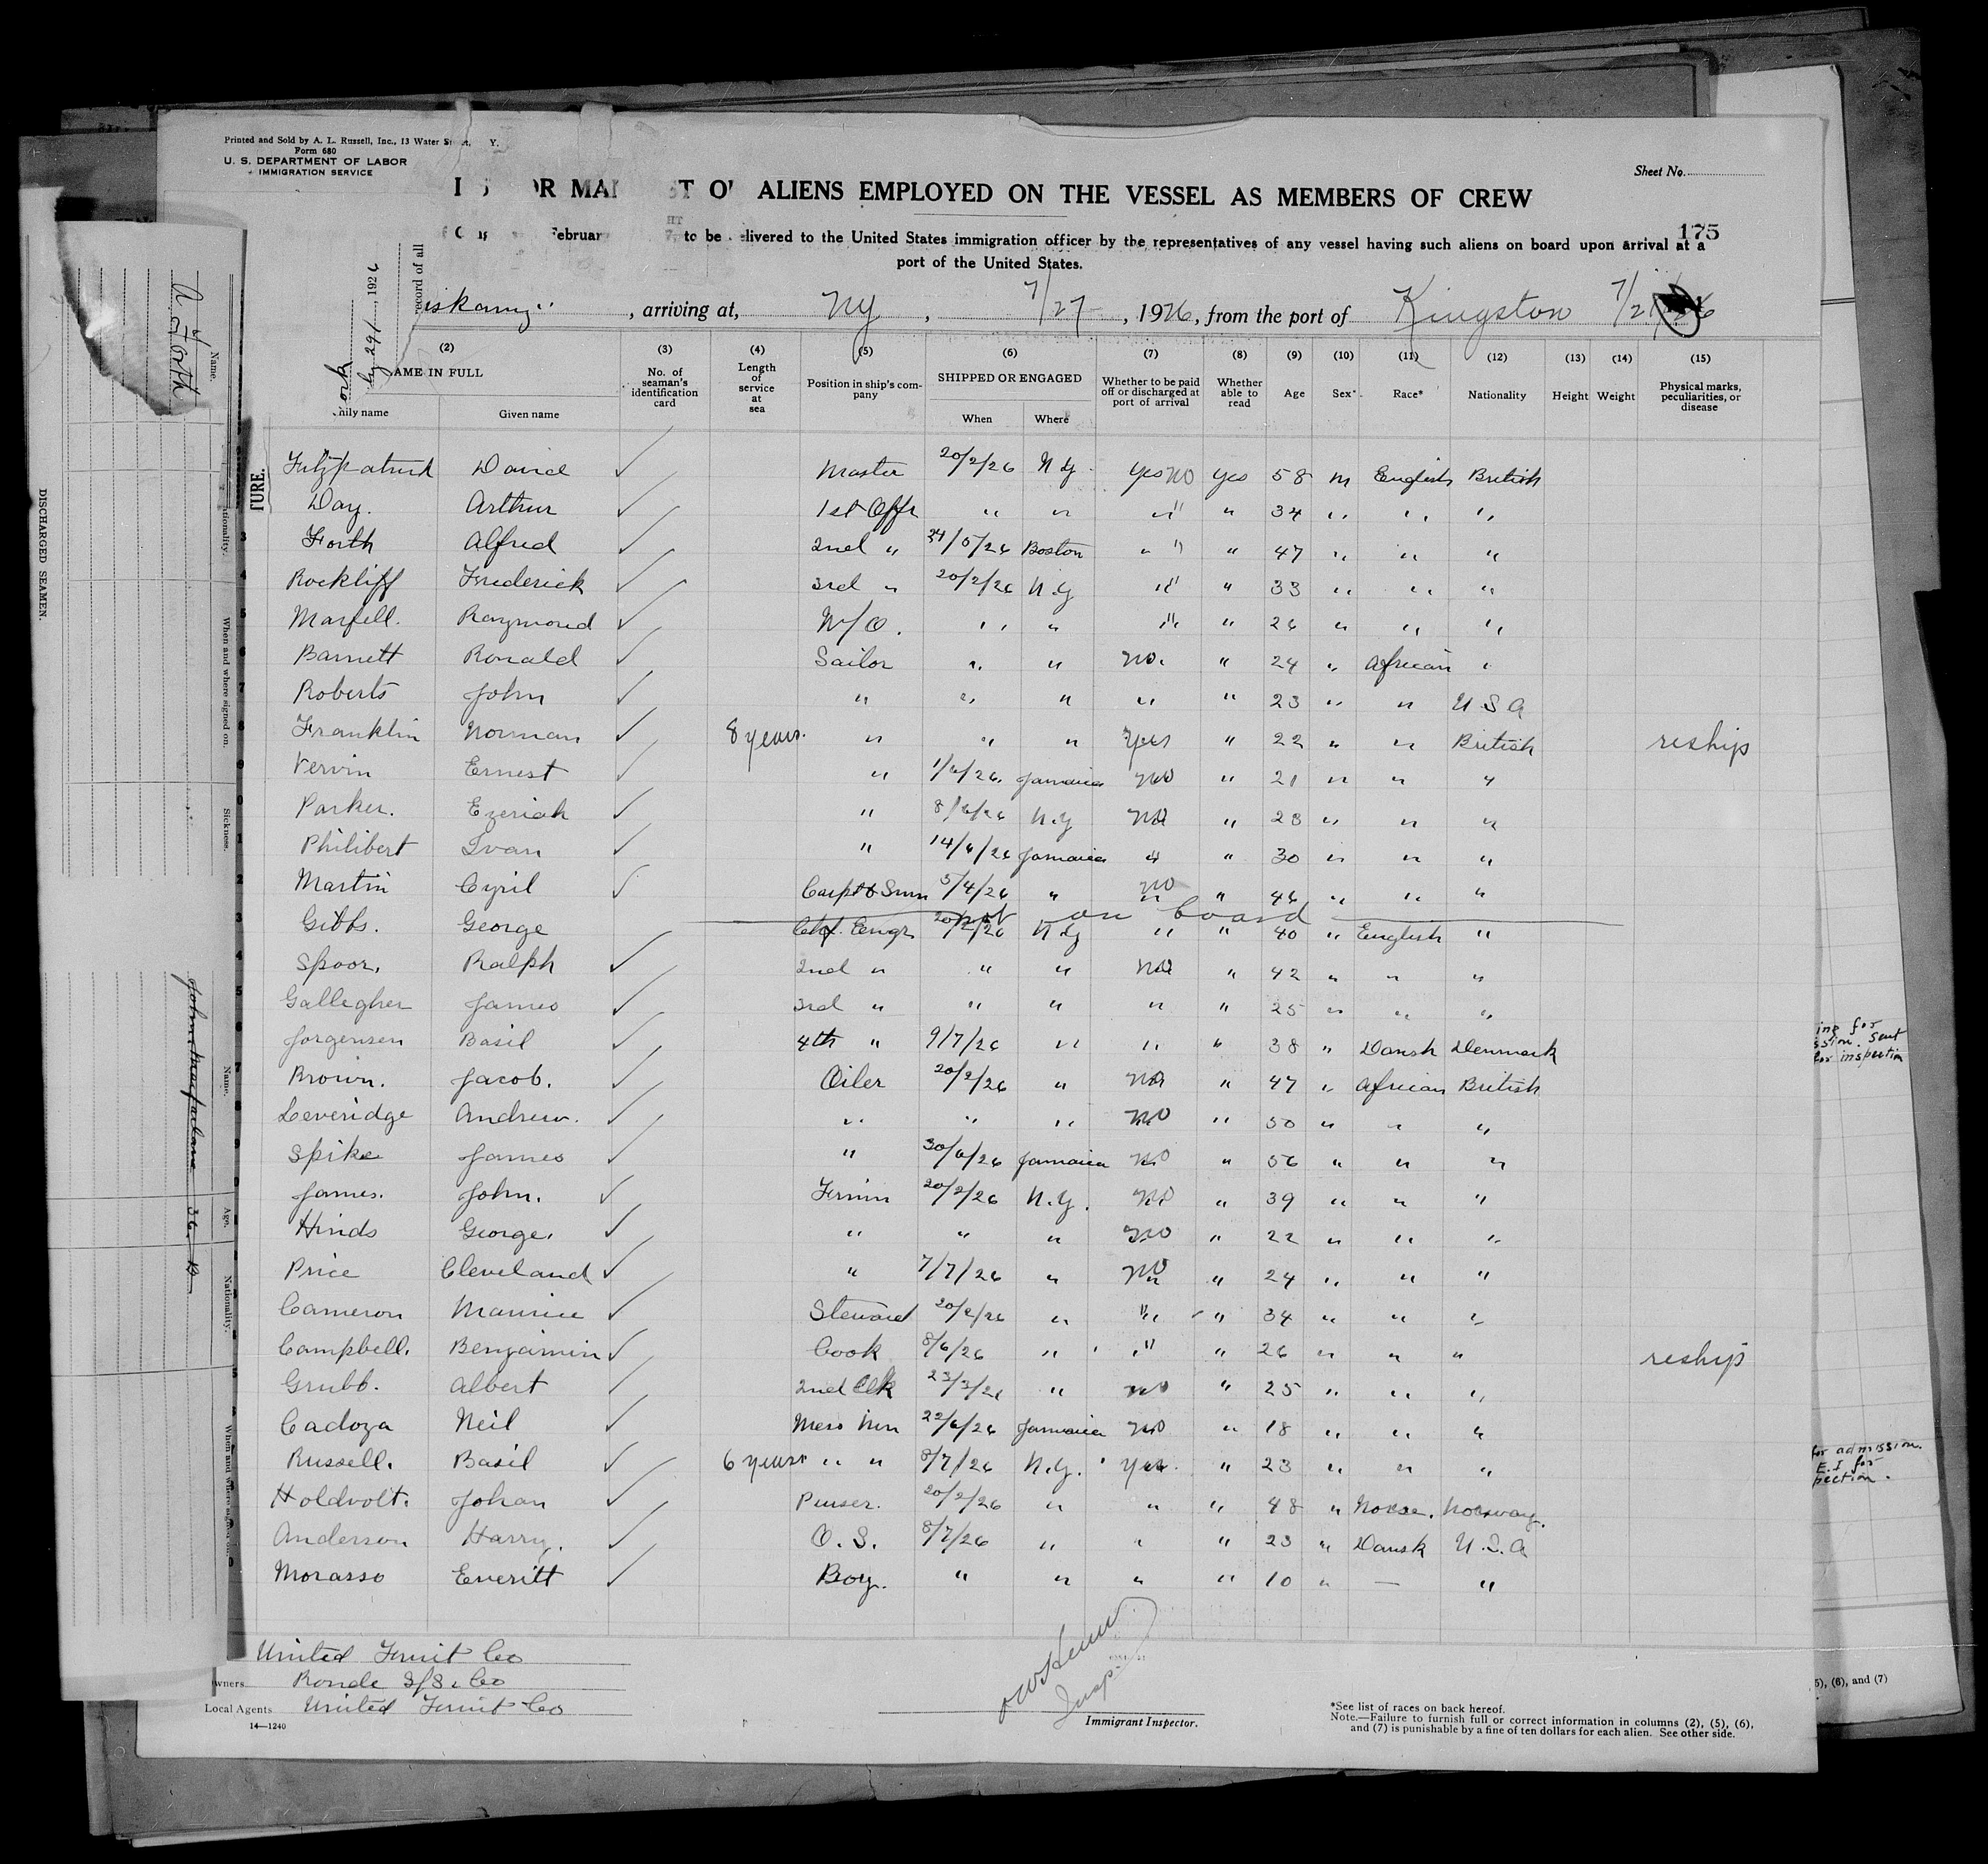 Printed and Sold by A. L. Russell, Inc., 13 Water Y.
Form 680
U. S. DEPARTMENT OF LABOR
IMMIGRATION SERVICE
Sheet No.
ALIENS EMPLOYED ON THE VESSEL AS MEMBERS OF CREW
175
to be delivered to the United States immigration officer by the representatives of any vessel having such aliens on board upon arrival at a
port of the United States.
, arriving at, NY , 7/27 , 1926, from the port of Kingston
(2) (3) (4) (5) (6) (7) (8) (9) (10) (11) (12) (13) (14) (15)
NAME IN FULL
No. of seaman's identification card
Length of service at sea
Position in ship's company
SHIPPED OR ENGAGED
When Where
Whether to be paid off or discharged at port of arrival
Whether able to read
Age Sex* Race* Nationality Height Weight
Physical marks, peculiarities, or disease
Given name
Fitzpatrick David ✓ Master 20/2/26 N Y Yes NO Yes 58 m English British
Day. Arthur ✓ 1st Offr " " " " 34 " " "
Forth Alfred ✓ 2nd " 24/5/26 Boston " " 47 " " "
Rockliff Frederick ✓ 3rd " 20/2/26 N.Y " " 33 " " "
Marfell. Raymond ✓ W/O. " " " " 26 " " "
Barnett Ronald ✓ Sailor " " no. " 24 " African "
Roberts John ✓ " " " " " 23 " " U S A
Franklin Norman ✓ 8 years " " " Yes " 22 " " British reship
Vervin Ernest ✓ " 1/6/26 Jamaica NO " 21 " " "
Parker. Ezeriah ✓ " 8/6/26 N.Y NO " 28 " " "
Philibert Ivan ✓ " 14/6/26 Jamaica " " 30 " " "
Martin Cyril ✓ 5/4/26 " no " 46 " " "
not on board
Gibbs. George Chf. Engr 20/2/26 N Y " " 40 " English "
Spoor, Ralph ✓ 2nd " " " NO " 42 " " "
Gallegher James ✓ 3rd " " " " " 25 " " "
Jorgensen Basil ✓ 4th " 9/7/26 " " " 38 " Dansk Denmark
Brown. Jacob. ✓ Oiler 20/2/26 " NO " 47 " African British
Leveridge Andrew. ✓ " " " NO " 50 " " "
Spike James ✓ " 30/6/26 Jamaica NO " 56 " " "
James. John. ✓ 20/2/26 N.Y. NO " 39 " " "
Hinds George. ✓ " " " NO " 22 " " "
Price Cleveland ✓ " 7/7/26 " NO " 24 " " "
Cameron Maurice ✓ Steward 20/2/26 " " " 34 " " "
Campbell. Benjamin ✓ Cook 8/6/26 " " " 26 " " " reship
Grubb. Albert ✓ 2nd Clk 23/3/26 " no " 25 " " "
Cadoza Neil ✓ Mess 22/6/26 Jamaica NO " 18 " " "
Russell. Basil ✓ 6 years " " 8/7/26 N.Y. Yes. " 23 " " "
Holdvolt. Johan ✓ Purser. 20/2/26 " " " 48 " Norse. Norway.
Anderson Harry. ✓ O. S. 8/7/26 " " " 23 " Dansk U.S.A
Morasso Everitt ✓ Boy. " " " " 10 " — "
United Fruit Co
Owners Ronde S/S. Co
Local Agents United Fruit Co
14—1240
Insp.
Immigrant Inspector.
*See list of races on back hereof.
Note.—Failure to furnish full or correct information in columns (2), (5), (6),
and (7) is punishable by a fine of ten dollars for each alien. See other side.
DISCHARGED SEAMEN.
Name.
A Forth
Nationality.
When and where signed on.
Sickness.
Name.
Age.
Nationality.
John Macfarlane 36
for inspection
for admission.
E.I for
5), (6), and (7)